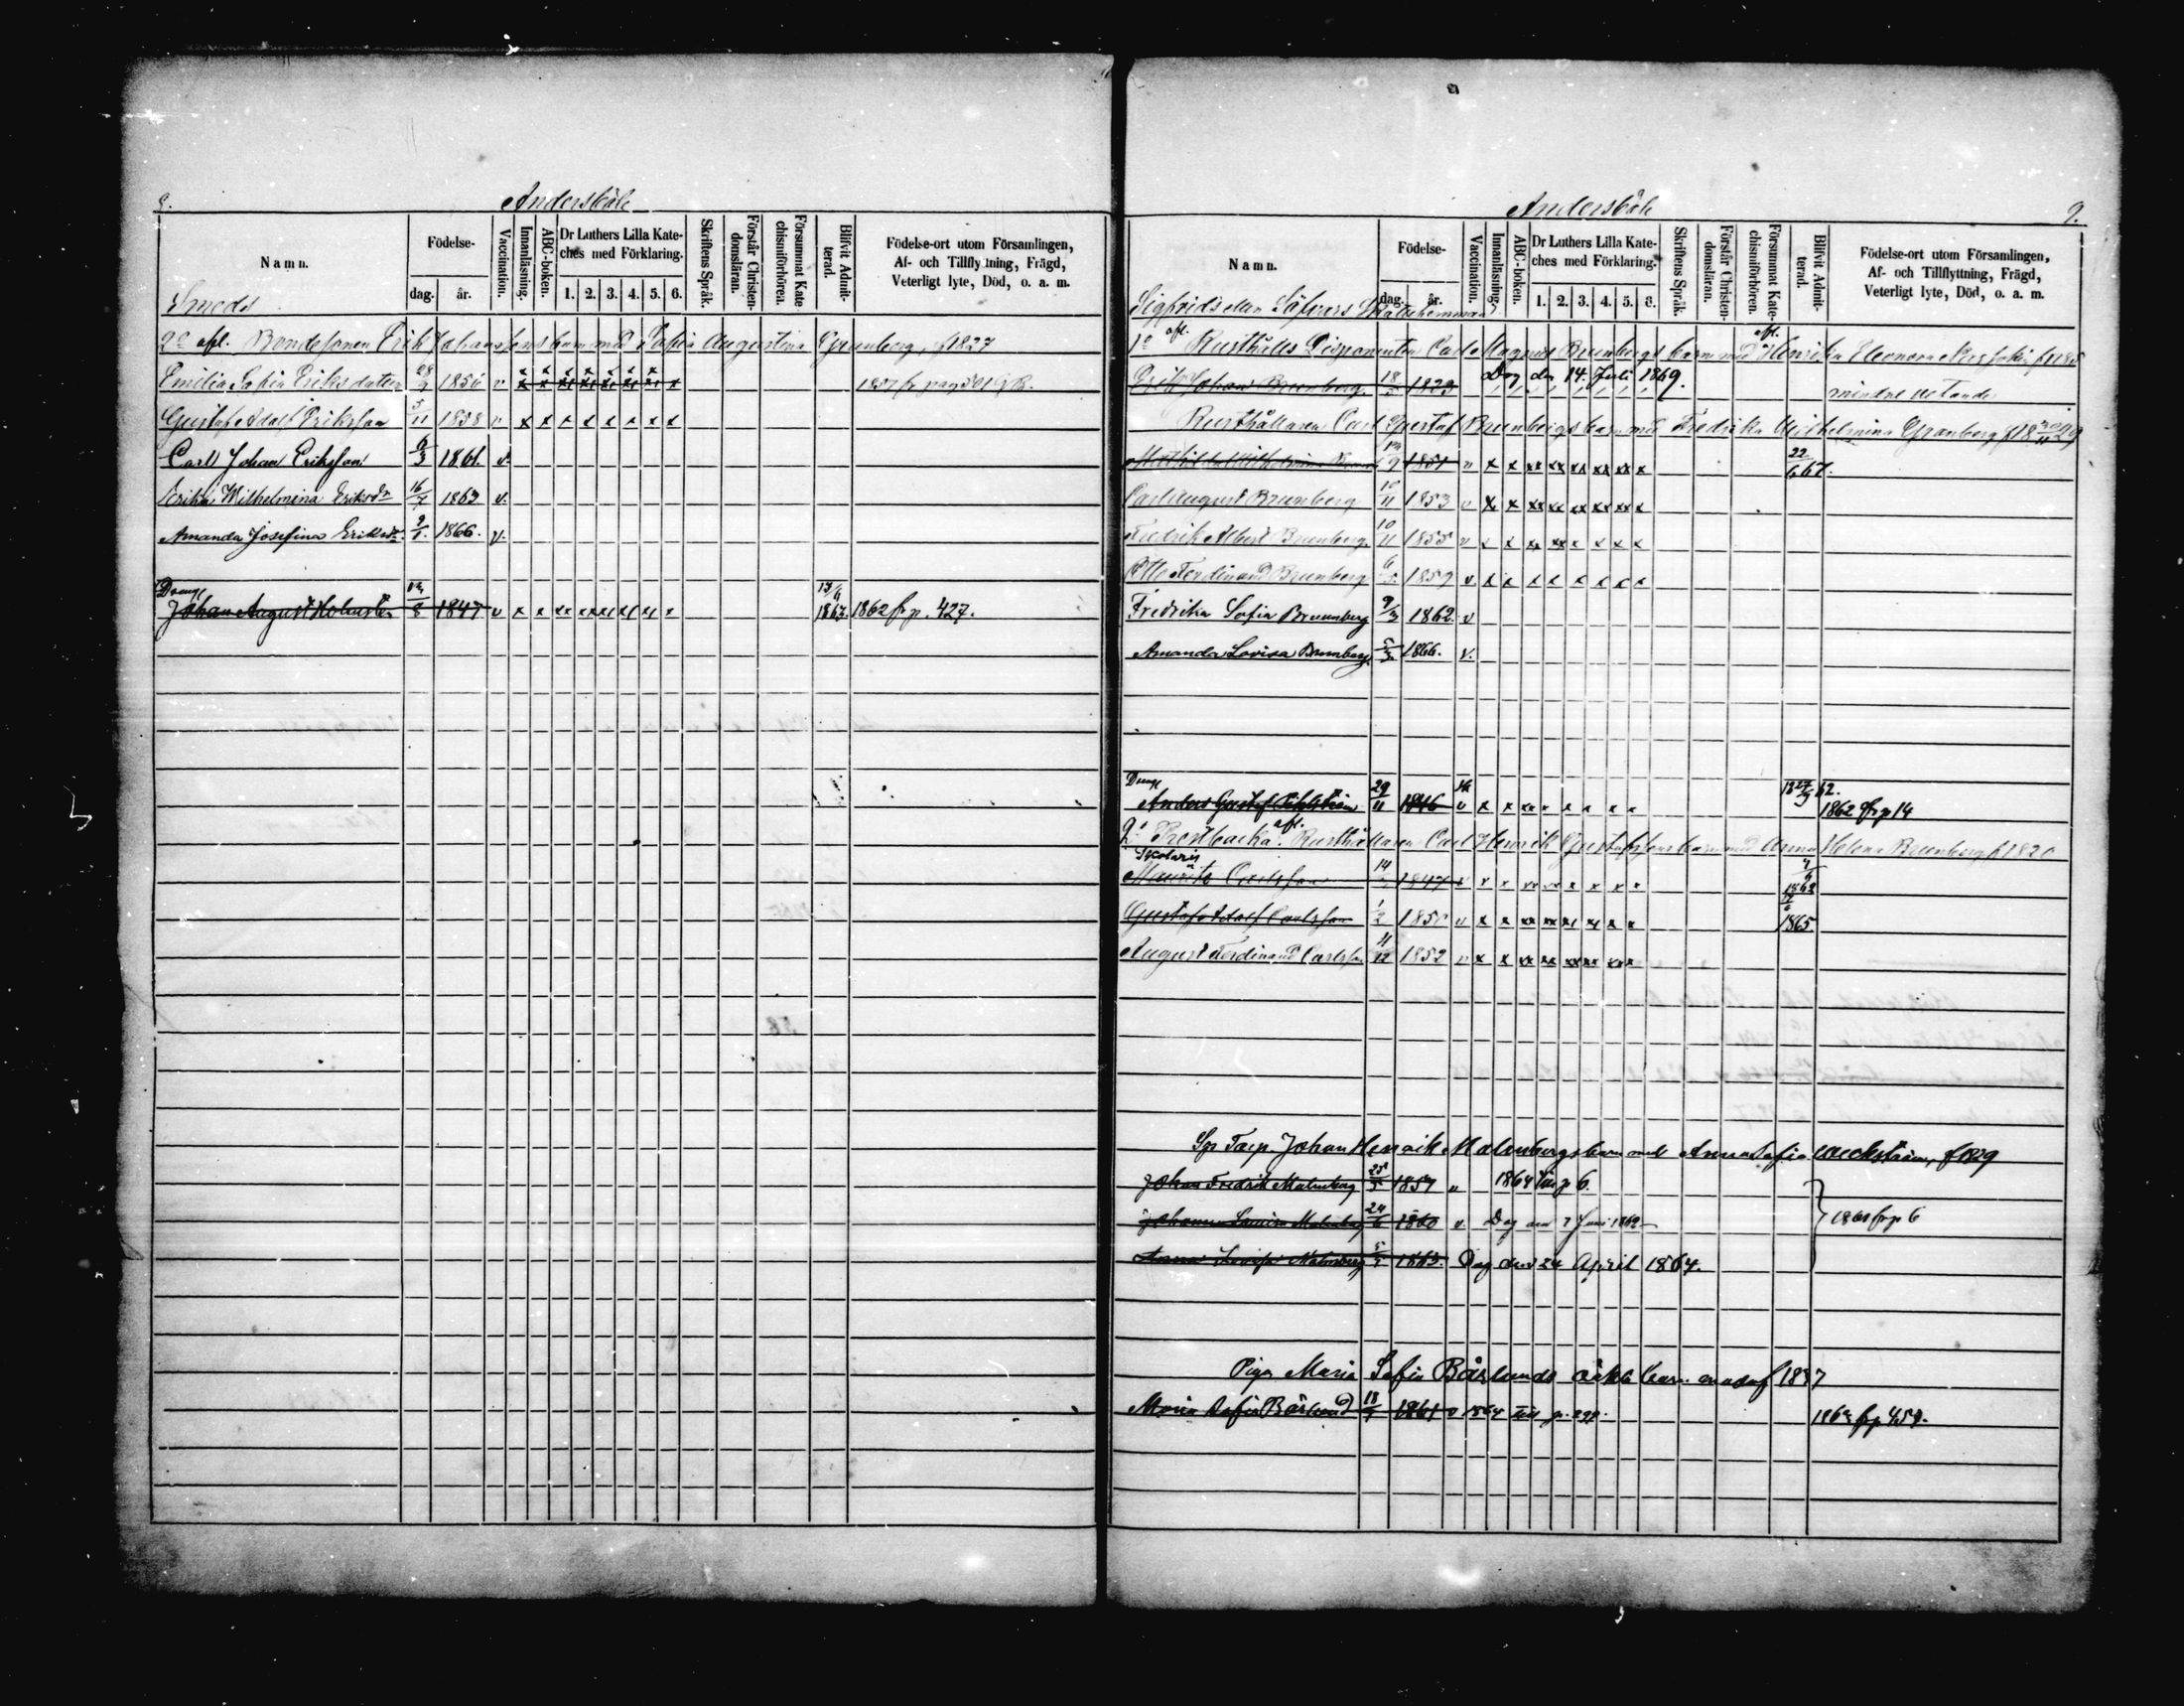 8.
Andersböle
Namn.
Födelse-
dag.
år.
Vaccination.
Innanläsning.
ABC-boken.
Dr Luthers Lilla Kate-
ches med Förklaring.
1. 2. 3. 4. 5. 6.
Skriftens Språk.
Förstår Christen-
domsläran.
Försummat Kate
chismiförhören.
Blifvit Admit-
terad.
Födelse-ort utom Församlingen,
Af- och Tillflyttning, Frägd,
Veterligt lyte, Död, o. a. m.
Smeds
2o afl. Bondesonen Erik Johanssons barn med Sofia Augustina Grunberg, f 1827
Emilia Sofia Eriksdotter 1850 v x x x x x x x x
Gustaf Adolf Eriksson 5/11 1858 v x x x x x x x x
Carl Johan Eriksson 6/3 1861. v.
Erika Wilhelmina Eriksdr 16/7 1863 v.
Amanda Josefina Eriksdr 9/1. 1866. v.
Dreng
Johan August Holmsten 8 1847 v x x xx x x x x x 1863. 1862 fr p. 427.
Andersböle
9.
Namn.
Födelse-
dag.
år.
Vaccination.
Innanläsning.
ABC-boken.
Dr Luthers Lilla Kate-
ches med Förklaring.
1. 2. 3. 4. 5. 6.
Skriftens Språk.
Förstår Christen-
domsläran.
Försummat Kate-
chismiförhören.
Blifvit Admit-
terad.
Födelse-ort utom Församlingen,
Af- och Tillflyttning, Frägd,
Veterligt lyte, Död, o. a. m.
Sigfrids eller Säfvars
1o afl. Rusthålls Disponenten Carl Magnus Brunbergs barn med afl. Henrika Eleonora
Erik Johan Brunberg. 18 1829 Dog den 14 Juli 1869. mindre vetande
Rusthållaren Carl Gustaf Brunbergs barn med Fredrika Wilhelmina Granberg f 1829
Mathilda Wilhelmina 9 1851 v x x xx xx xx xx x x 22/6 67.
Carl August Brunberg 10/11 1853 v x x xx xx xx xx xx x
Fredrik Albert Brunberg. 10/11 1855 v x x xx xx x x x x
Otto Ferdinand Brunberg 6 1859 v x x x x x x x x
Fredrika Sofia Brunberg 9/3 1862. v
Amanda Lovisa Brunberg. 5/3. 1866. v.
Dreng
Anders Gustaf 29/11 1846 v x x xx x x x x x 1862 fr p 14
2o Prestbacka. afl. Rusthållaren Carl Henrik Gustafssons barn med Anna Helena Brunberg f 1820
Scolaris
Mauritz Carlsson 14 1847 v x x xx xx x x x x 1862
Gustaf Adolf Carlsson 1/2 1850 v x x xx xx x x x x 1865
August Ferdinand Carlsson 11/12 1852 v x x xx xx xx xx xx x
Sp Torp. Johan Henrik Malmbergs barn med Anna Sofia Weckström, f 1829
Johan Fredrik Malmberg 25/5 1857 v 1864 till p 6.
Johanna Lovisa Malmberg 24/6 1860 v. Dog den 7 Juni 1862 1861 fr p 6
Anna Lovisa Malmberg 1863. Dog den 24 April 1864.
Piga Maria Sofia Båslunds oäkta barn. f 1837
Maria Sofia Båslund 18 1861 v 1864 till p.